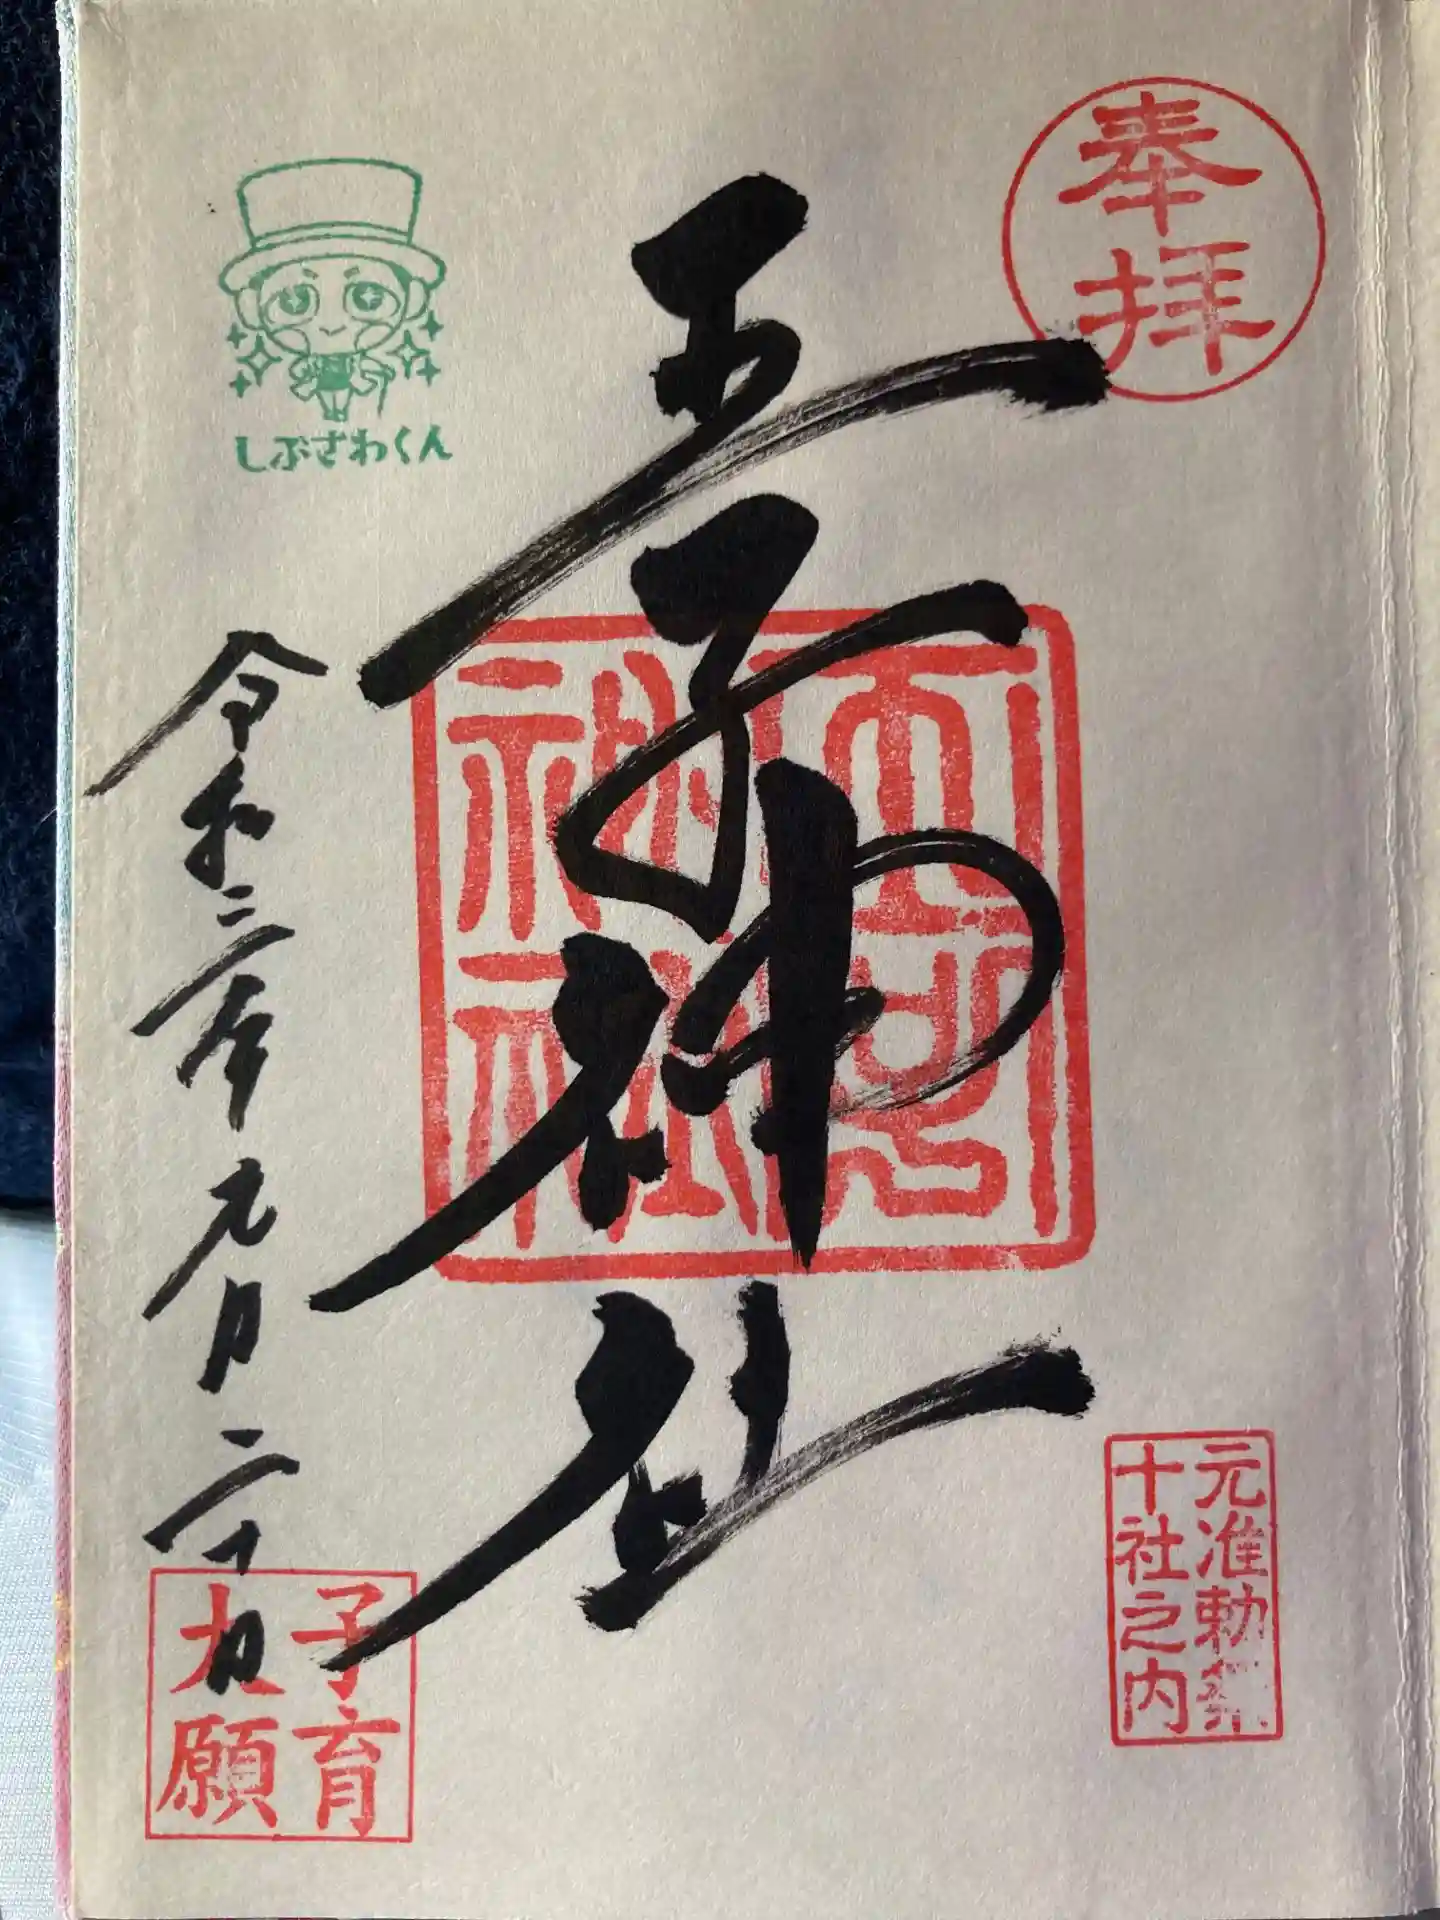 奉拝
王子神社
王子
神社
元准勅祭
十社之内
しぶざわくん
令和二年元月二十日
子育
大願